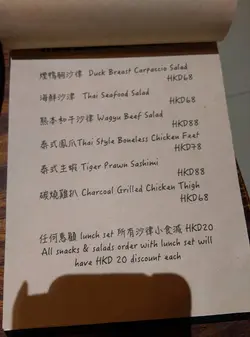 煙鴨胸沙律 Duck Breast Carpaccio Salad
HKD68
海鮮沙律 Thai Seafood Salad
HKD68
熊本和牛沙律 Wagyu Beef Salad
HKD88
泰式鳳爪Thai Style Boneless Chicken Feet
HKD78
泰式生蝦 Tiger Prawn Sashimi
HKD88
碳燒雞扒 Charcoal Grilled Chicken Thigh
HKD68
任何惠顧 lunch set 所有沙律小食減 HKD20
All snacks & salads order with lunch set will
have HKD 20 discount each